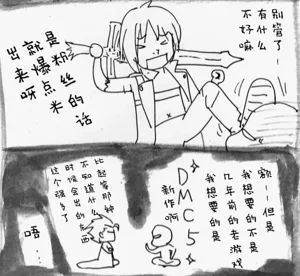 别管了！
有什么
不好嘛
粉丝的话
就是爆点米
出来呀
额！！但是
我想要的不是
几年前的老游戏
我想要的是
DMC5
新作啊
比起等那种
不知道什么
时候会出的
这个强多了
唔…